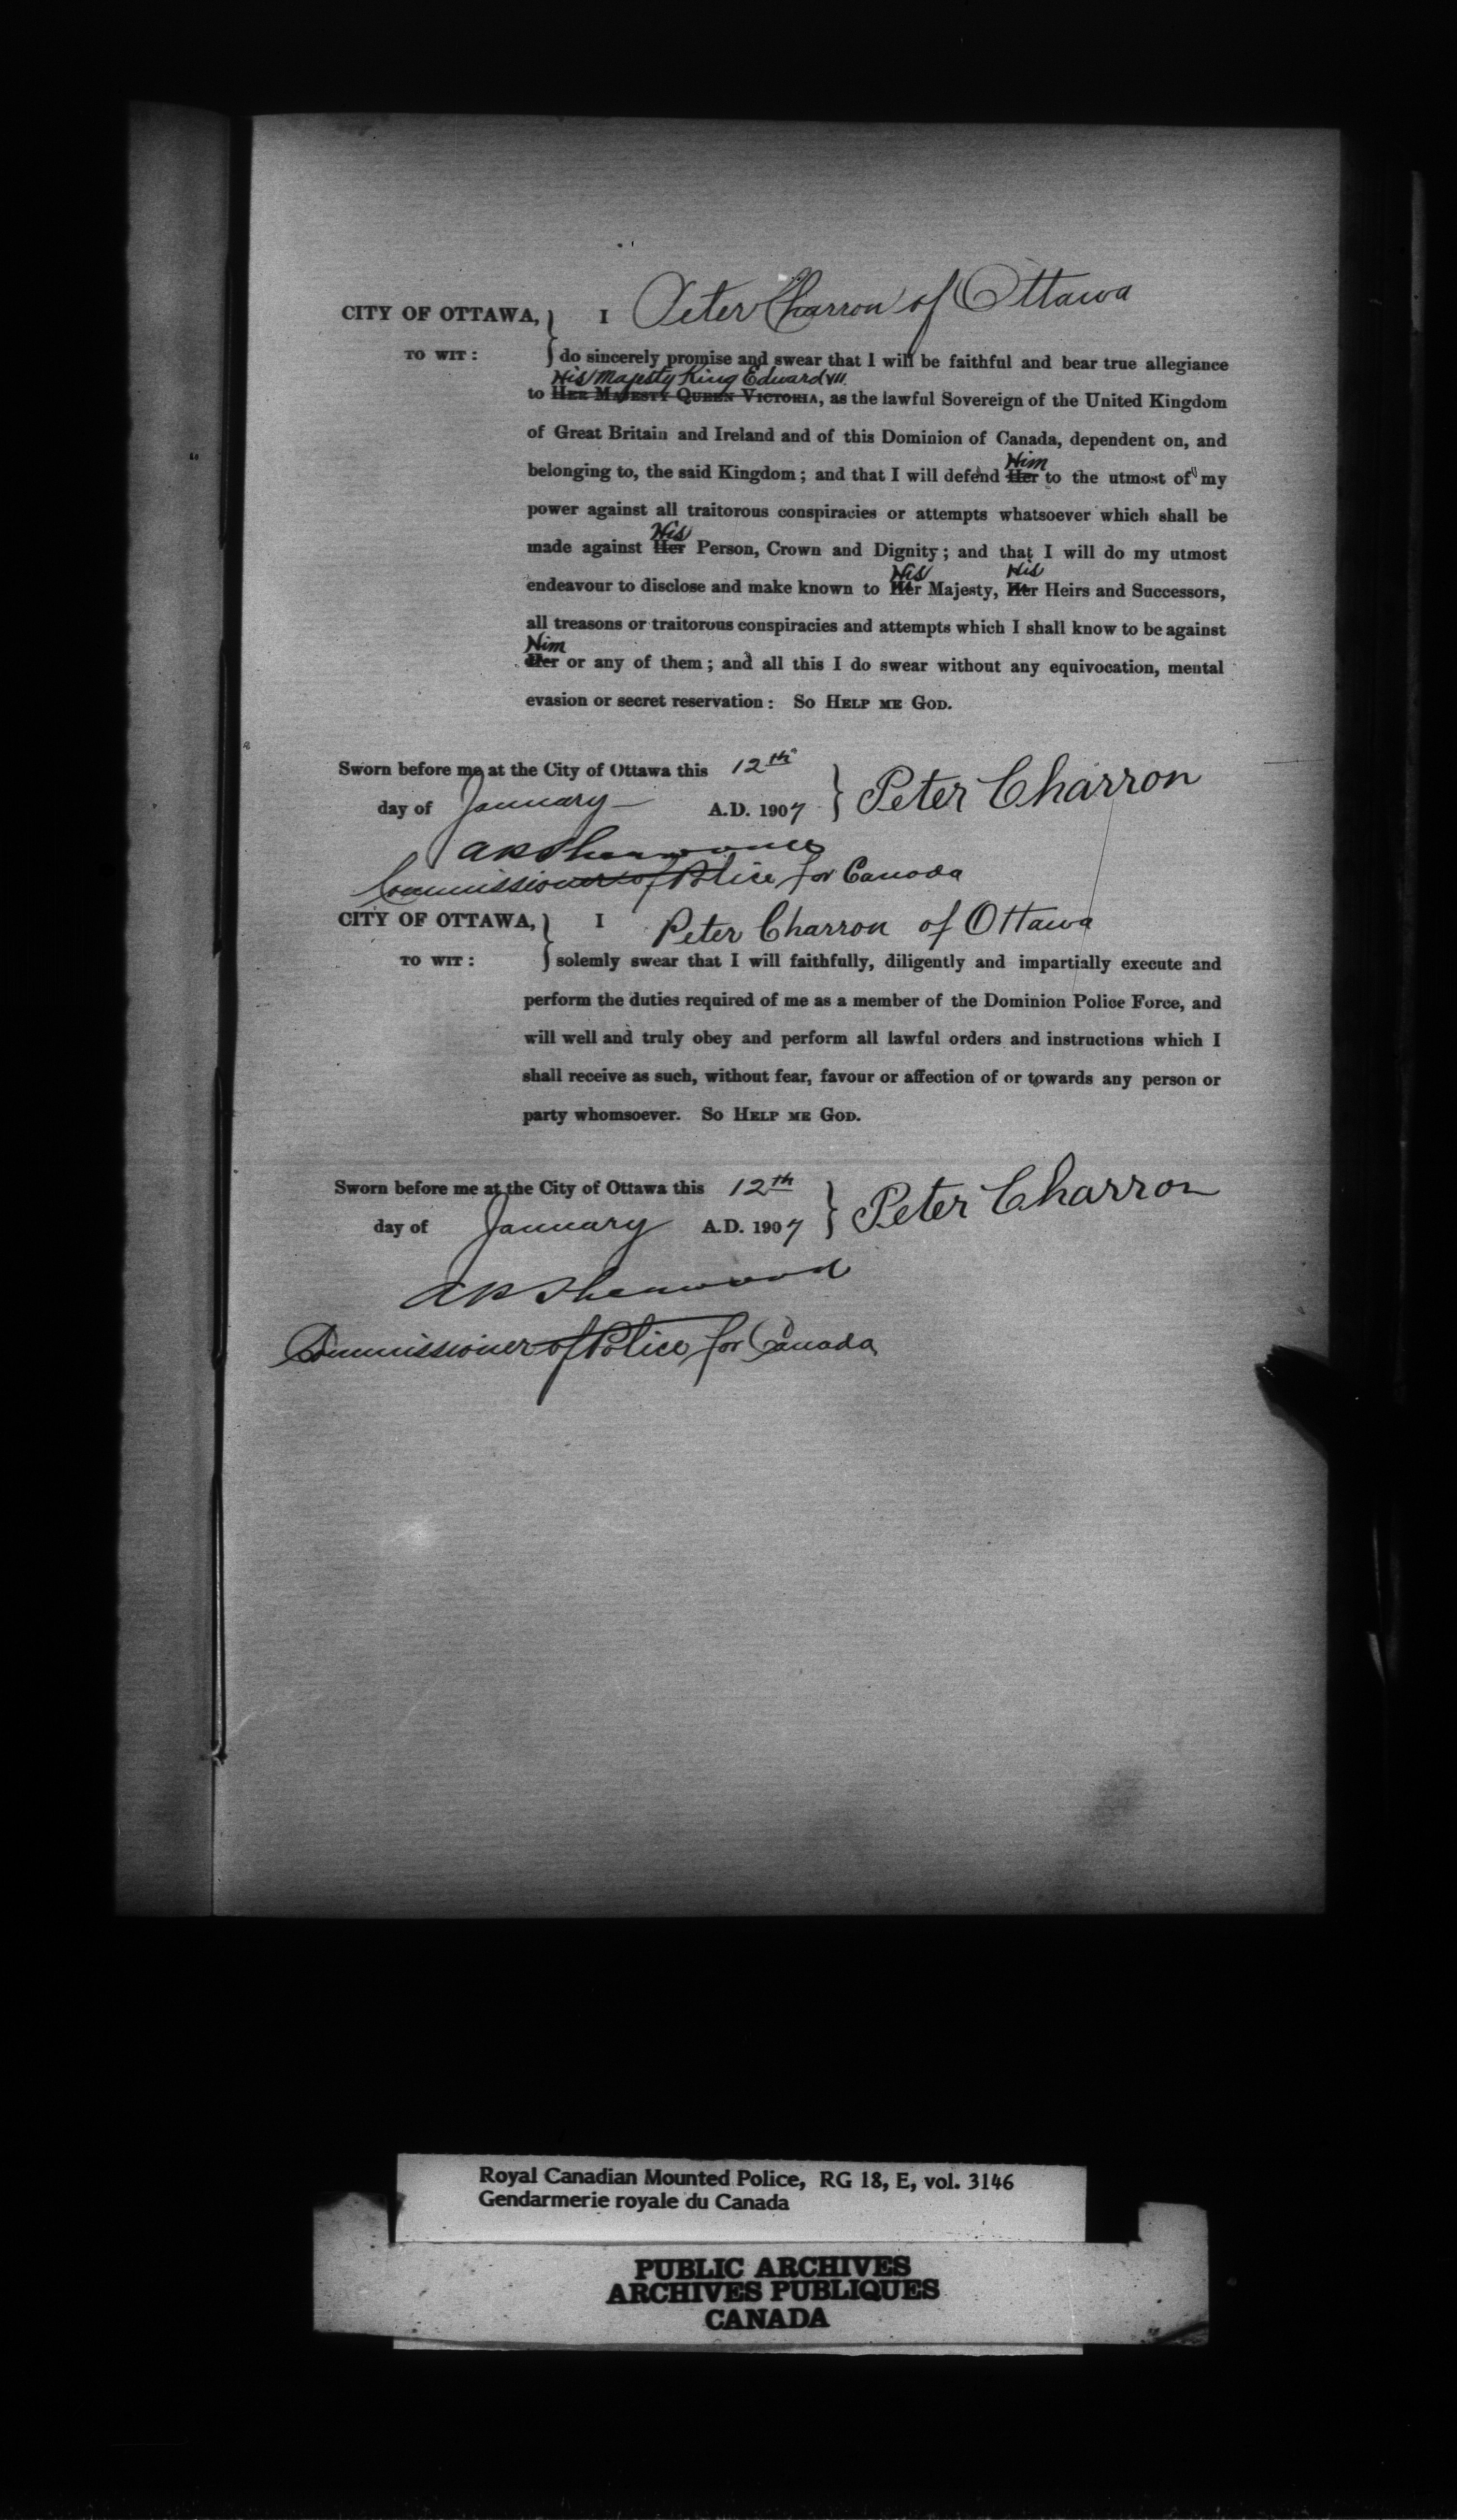 CITY OF OTTAWA, } I Peter Charron of Ottawa
TO WIT : } do sincerely promise and swear that I will be faithful and bear true allegiance
His Majesty King Edward VII.
to HER MAJESTY QUEEN VICTORIA, as the lawful Sovereign of the United Kingdom
of Great Britain and Ireland and of this Dominion of Canada, dependent on, and
Him
belonging to, the said Kingdom ; and that I will defend Her to the utmost of my
power against all traitorous conspiracies or attempts whatsoever which shall be
His
made against Her Person, Crown and Dignity ; and that I will do my utmost
His His
endeavour to disclose and make known to Her Majesty, Her Heirs and Successors,
all treasons or traitorous conspiracies and attempts which I shall know to be against
Him
Her or any of them ; and all this I do swear without any equivocation, mental
evasion or secret reservation : SO HELP ME GOD.
Sworn before me at the City of Ottawa this 12th
day of January A.D. 1907 } Peter Charron
A P Sherwood
Commissioner of Police for Canada
CITY OF OTTAWA, } I Peter Charron of Ottawa
TO WIT : } solemly swear that I will faithfully, diligently and impartially execute and
perform the duties required of me as a member of the Dominion Police Force, and
will well and truly obey and perform all lawful orders and instructions which I
shall receive as such, without fear, favour or affection of or towards any person or
party whomsoever. SO HELP ME GOD.
Sworn before me at the City of Ottawa this 12th
day of January A.D. 1907 } Peter Charron
A P Sherwood
Commissioner of Police for Canada
Royal Canadian Mounted Police, RG 18, E, vol. 3146
Gendarmerie royale du Canada
PUBLIC ARCHIVES
ARCHIVES PUBLIQUES
CANADA